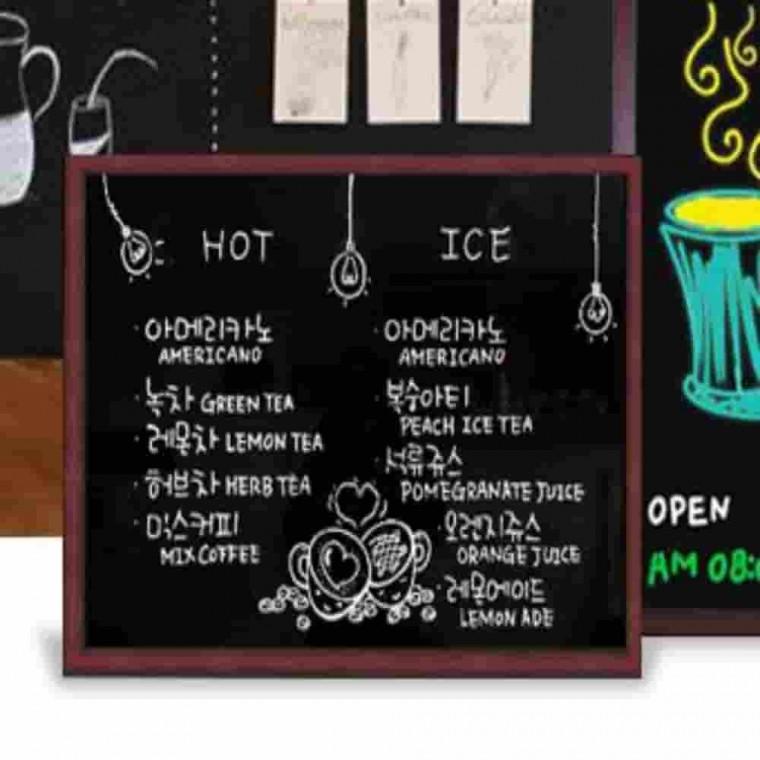 HOT
아메리카노
AMERICANO
녹차 GREEN TEA
레몬차 LEMON TEA
허브차 HERB TEA
믹스커피
MIX COFFEE
ICE
아메리카노
AMERICANO
복숭아티
PEACH ICE TEA
석류쥬스
POMEGRANATE JUICE
오렌지쥬스
ORANGE JUICE
레몬에이드
LEMON ADE
OPEN
AM 08: